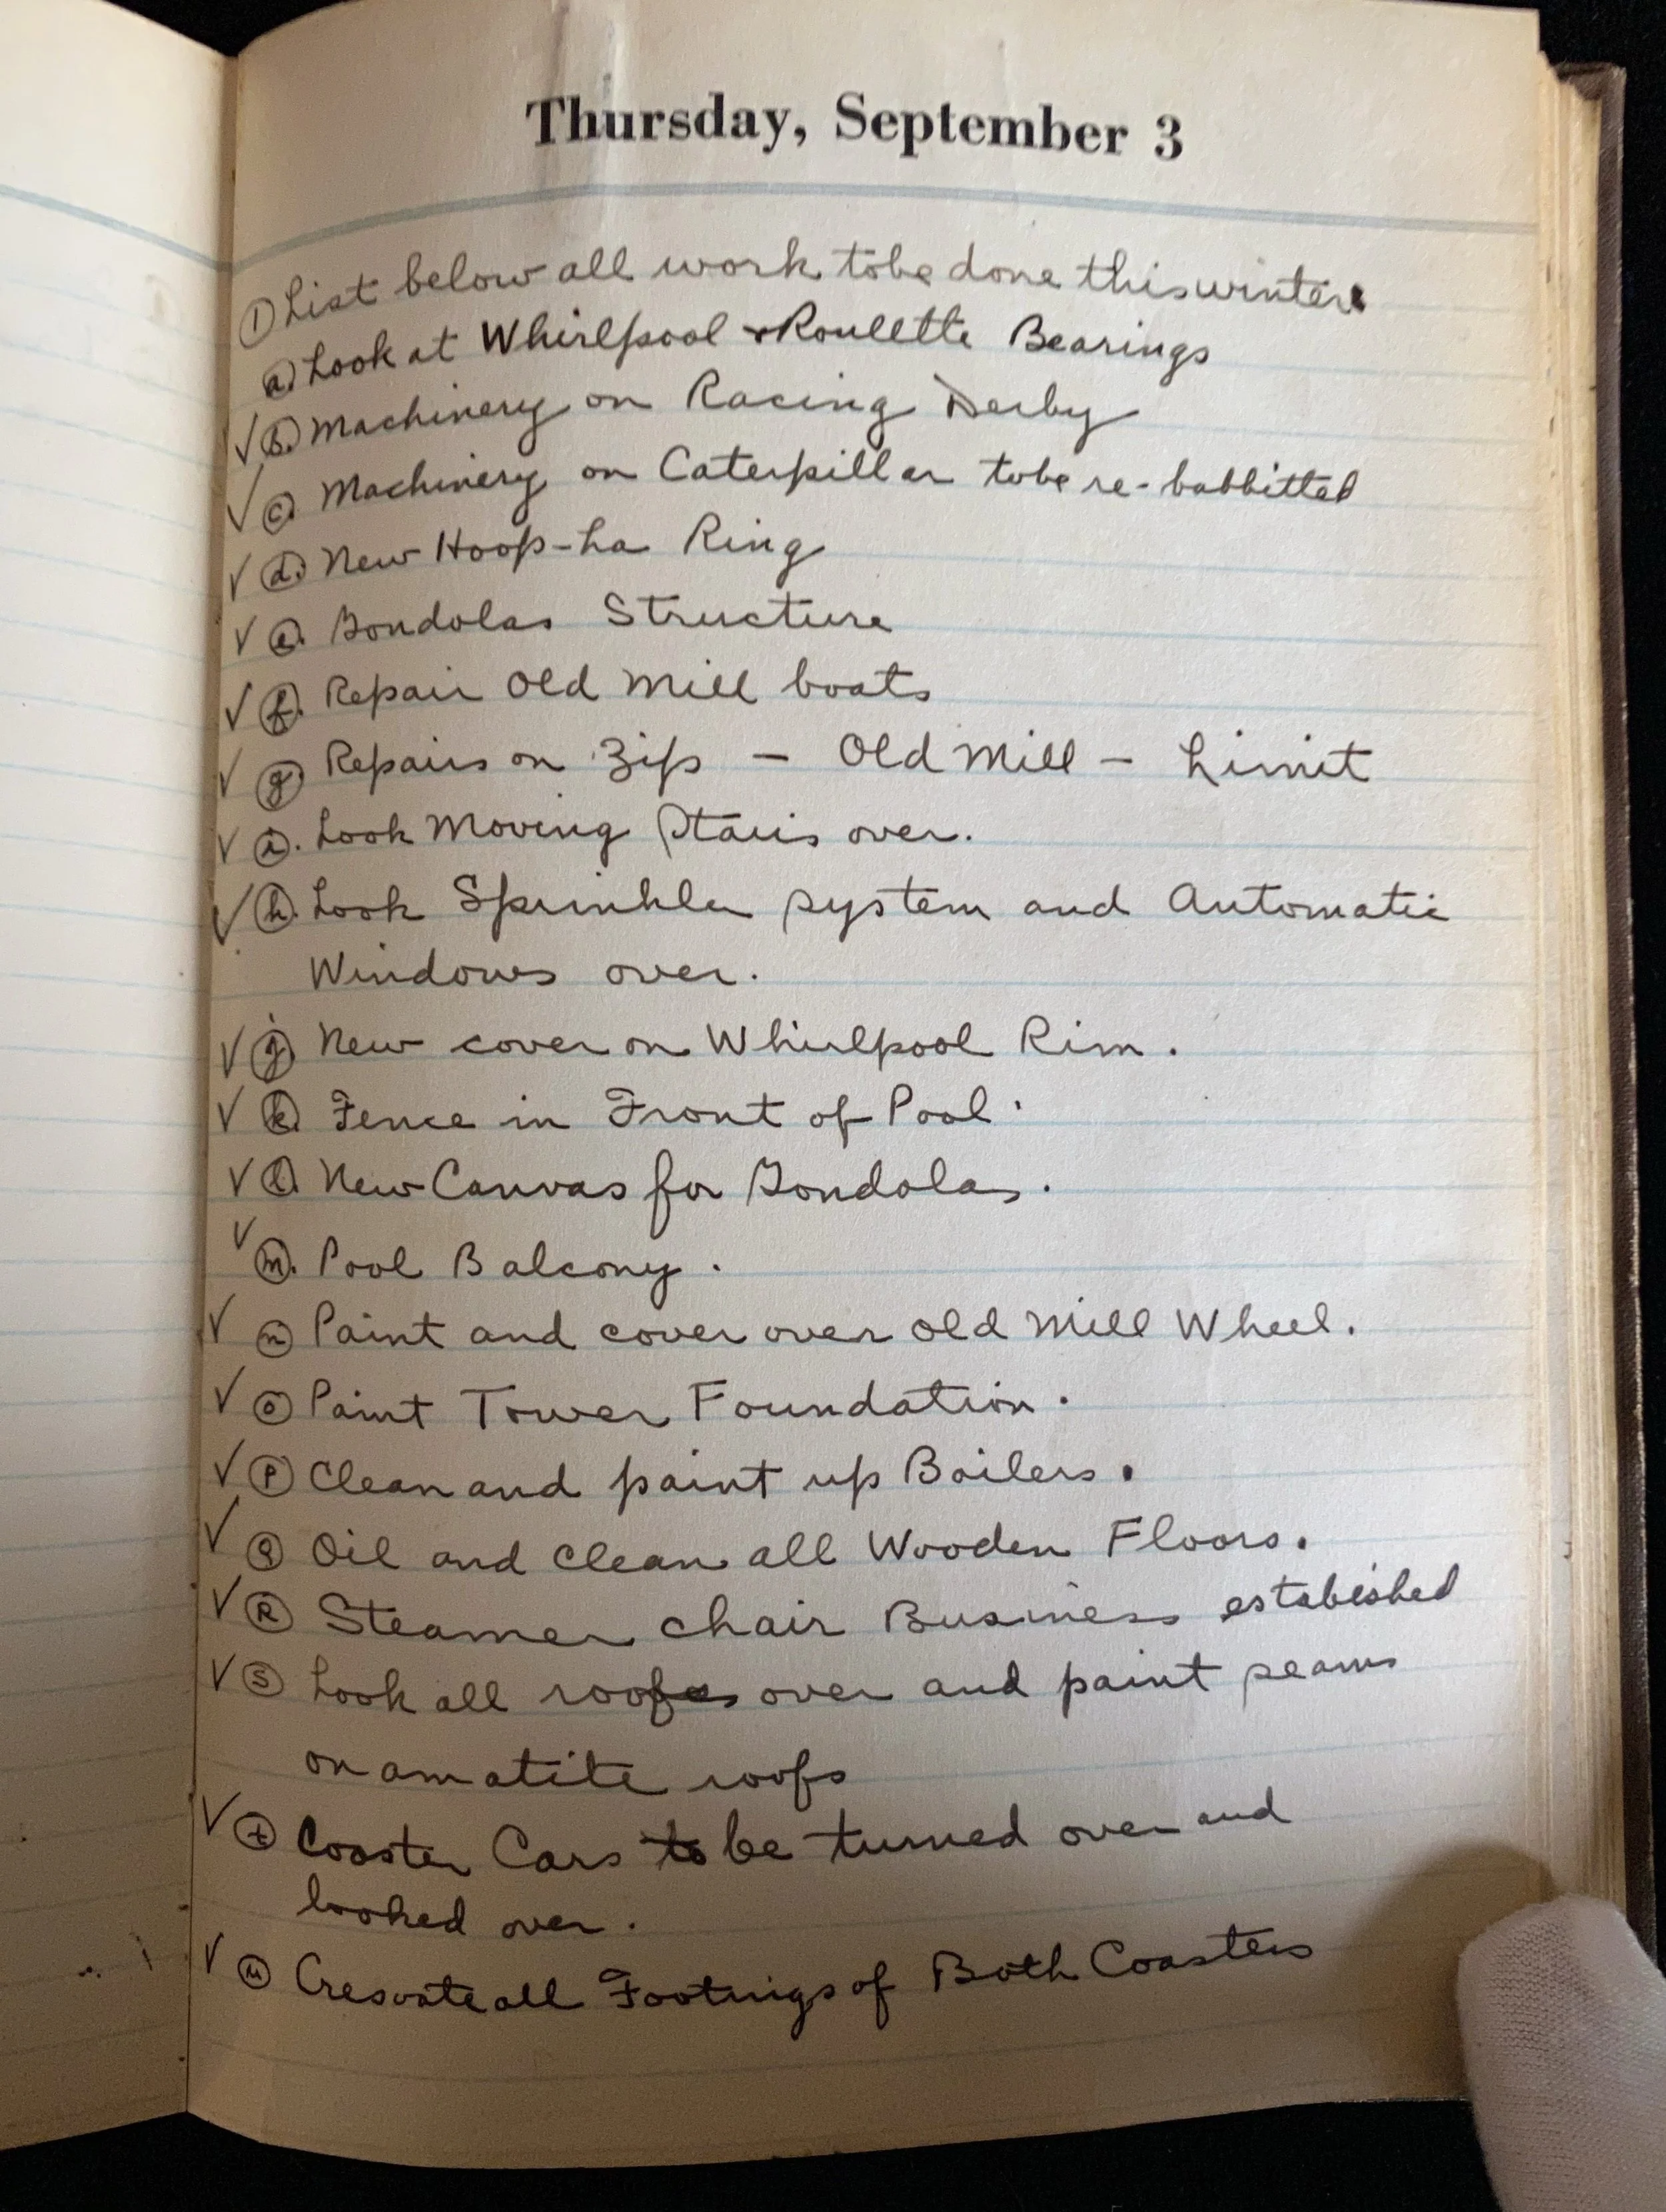 Thursday, September 3
① List below all work to be done this winter
ⓐ Look at Whirlpool & Roullette Bearings
✓ ⓑ. Machinery on Racing Derby
✓ ⓒ. Machinery on Caterpillar to be re-babbitted
✓ ⓓ. New Hoop-La Ring
✓ ⓔ. Gondolas Structure
✓ ⓕ. Repair Old Mill boats
✓ ⓖ. Repairs on Zip – Old Mill – Limit
✓ ⓘ. Look Moving Stairs over.
✓ ⓗ. Look Sprinkler system and Automatic
Windows over.
✓ ⓙ. New cover on Whirlpool Rim.
✓ ⓚ. Fence in Front of Pool.
✓ ⓛ. New Canvas for Gondolas.
✓ ⓜ. Pool Balcony.
✓ ⓝ Paint and cover over Old Mill Wheel.
✓ ⓞ Paint Tower Foundation.
✓ ⓟ Clean and paint up Boilers.
✓ ⓠ Oil and Clean all Wooden Floors.
✓ Ⓡ Steamer chair Business established
✓ Ⓢ Look all roofs over and paint seams
on amatite roofs
✓ ⓣ Coaster Cars to be turned over and
looked over.
✓ ⓤ Cresoate all Footings of Both Coasters